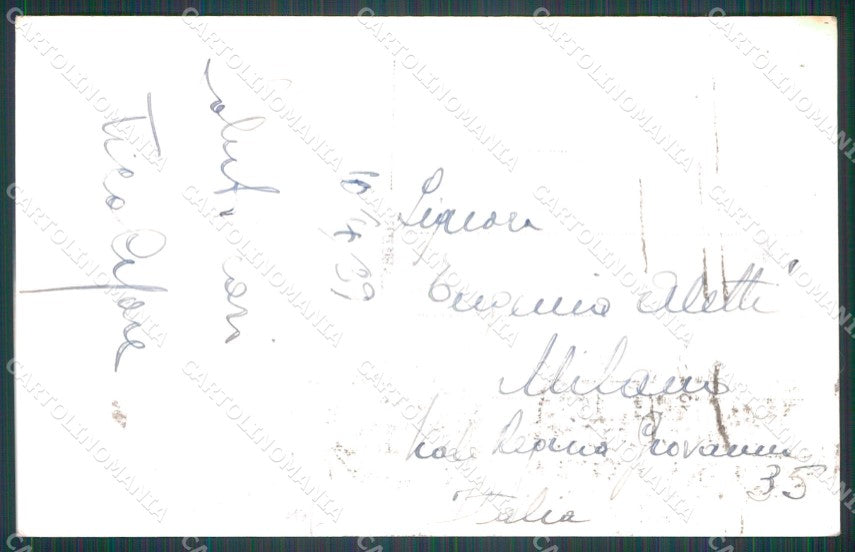 Saluti cari
10/4 39
Signora
Eugenia Aletti
Milano
Viale Regina Giovanna
35
Italia
CARTOLINOMANIA